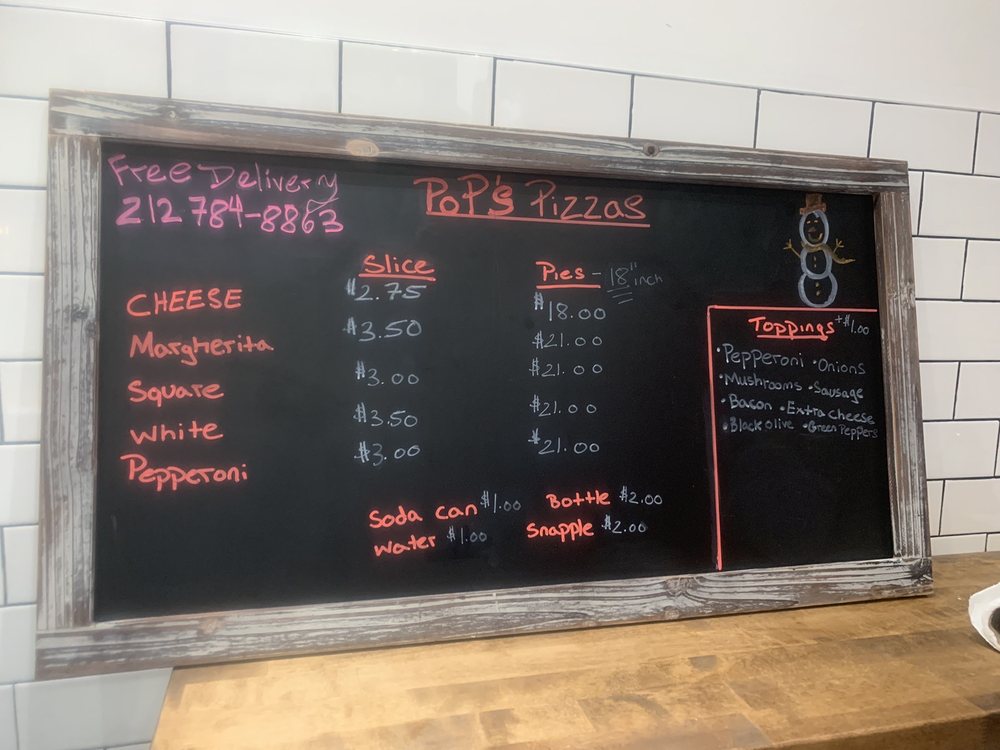 Free Delivery
212 784-8863
PoP's Pizzas
Slice
Pies - 18" inch
CHEESE $2.75 $18.00
Margherita $3.50 $21.00
Square $3.00 $21.00
White $3.50 $21.00
Pepperoni $3.00 $21.00
Soda can $1.00 Bottle $2.00
Water $1.00 Snapple $2.00
Toppings +$1.00
•Pepperoni •Onions
•Mushrooms •Sausage
•Bacon •Extra cheese
•Black olive •Green Peppers